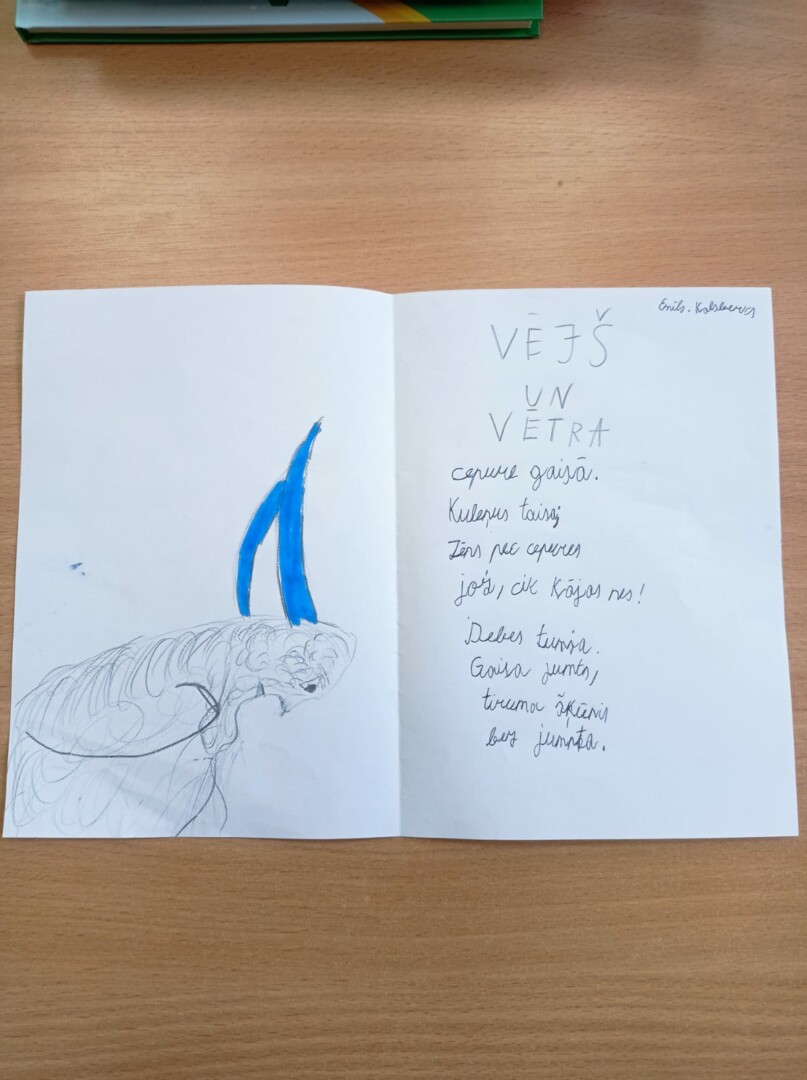 Emīls.
VĒJŠ
UN
VĒTRA
cepure gaisā.
Kuleņus taisa;
Zēns pēc cepures
još, cik Kājas nes!
Debes tumša.
Gaisa jumts,
tiruma šķūnis
bez jumta.